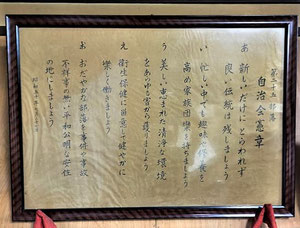 第二十五部落
自治会憲章
あ 新しいだけにとらわれず
良い伝統は残しましょう
い 忙しい中でも趣味と教養を
高め家族団欒を持ちましょう
う 美しい恵まれた清浄な環境
をあらゆる害から護りましょう
え 衛生保健に留意して健やかに
楽しく働きましょう
お おだやかな部落を事件や事故
不祥事の無い平和公明な安住
の地にしましょう